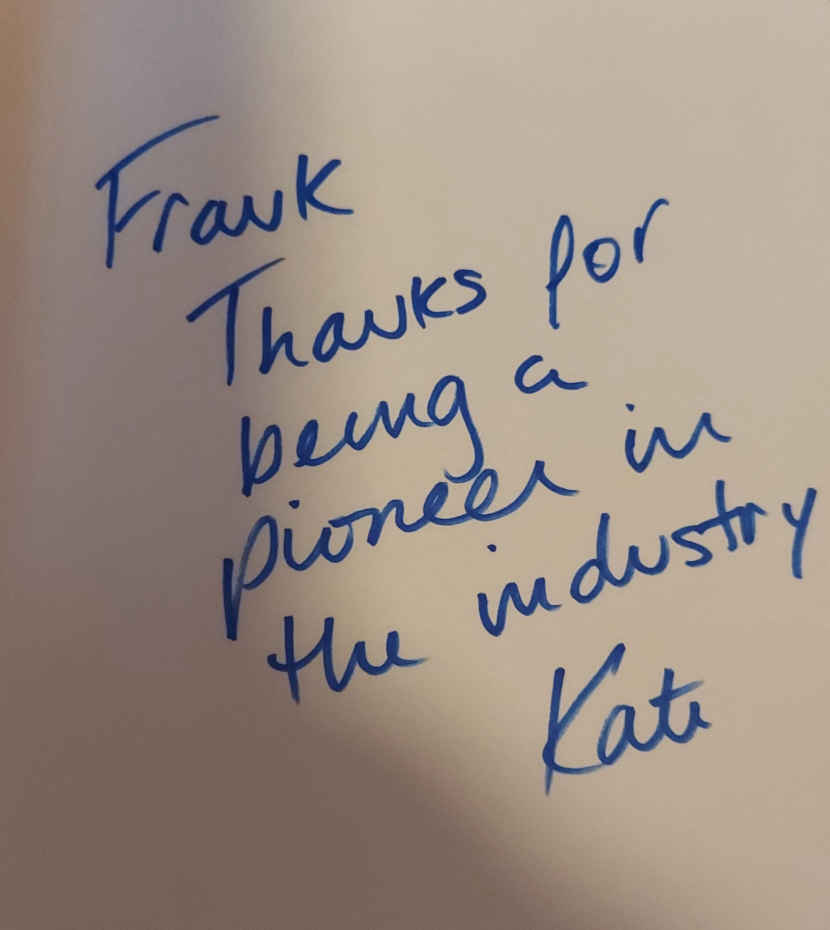 Frank
Thanks for
being a
pioneer in
the industry
Kate